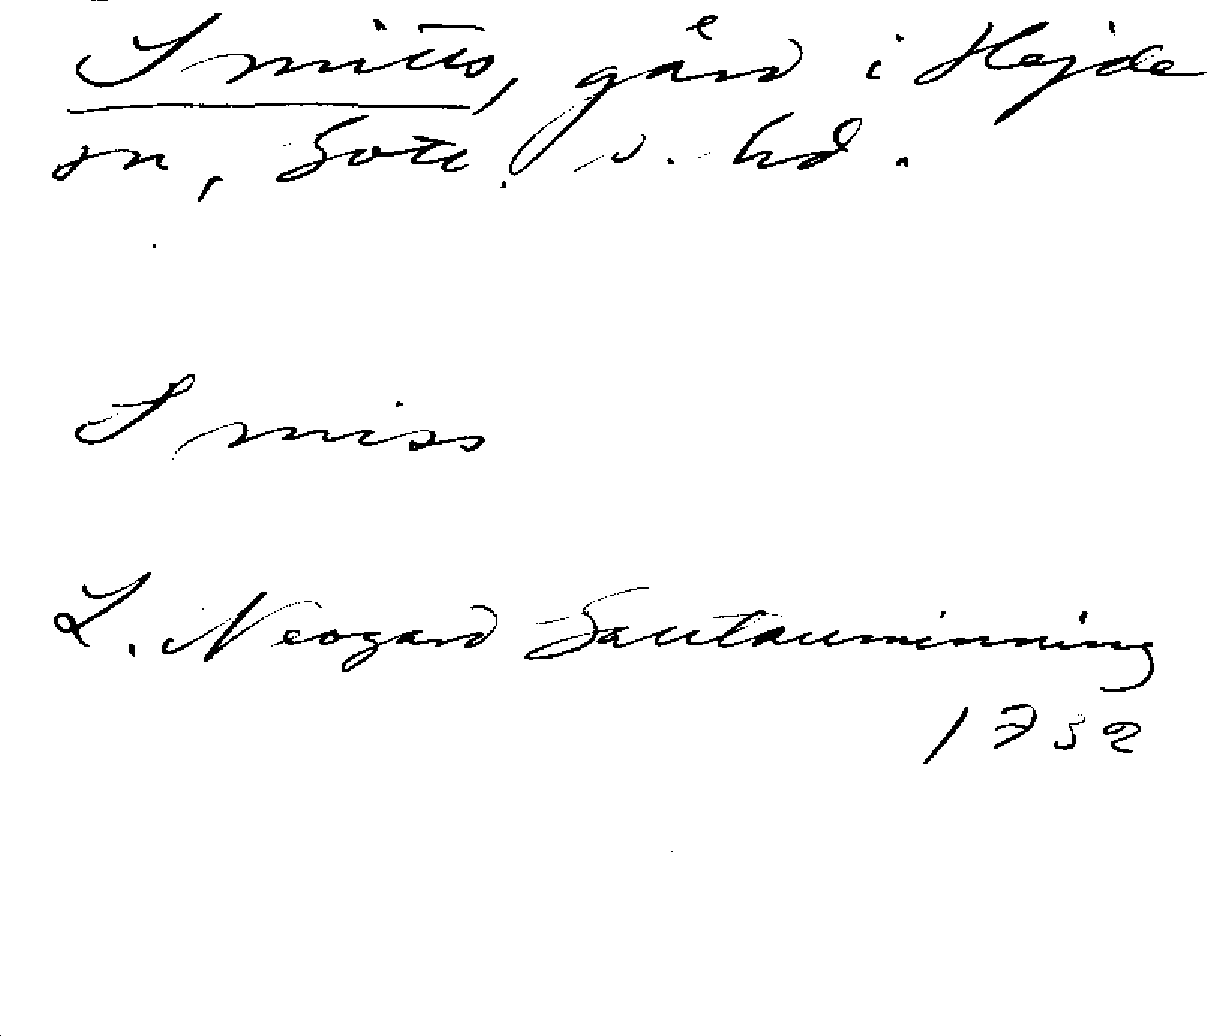 Smitts, gård i Hejde
sn, Gotl. s. hd.
Smiss
L. Neogard Gautauminning
1732